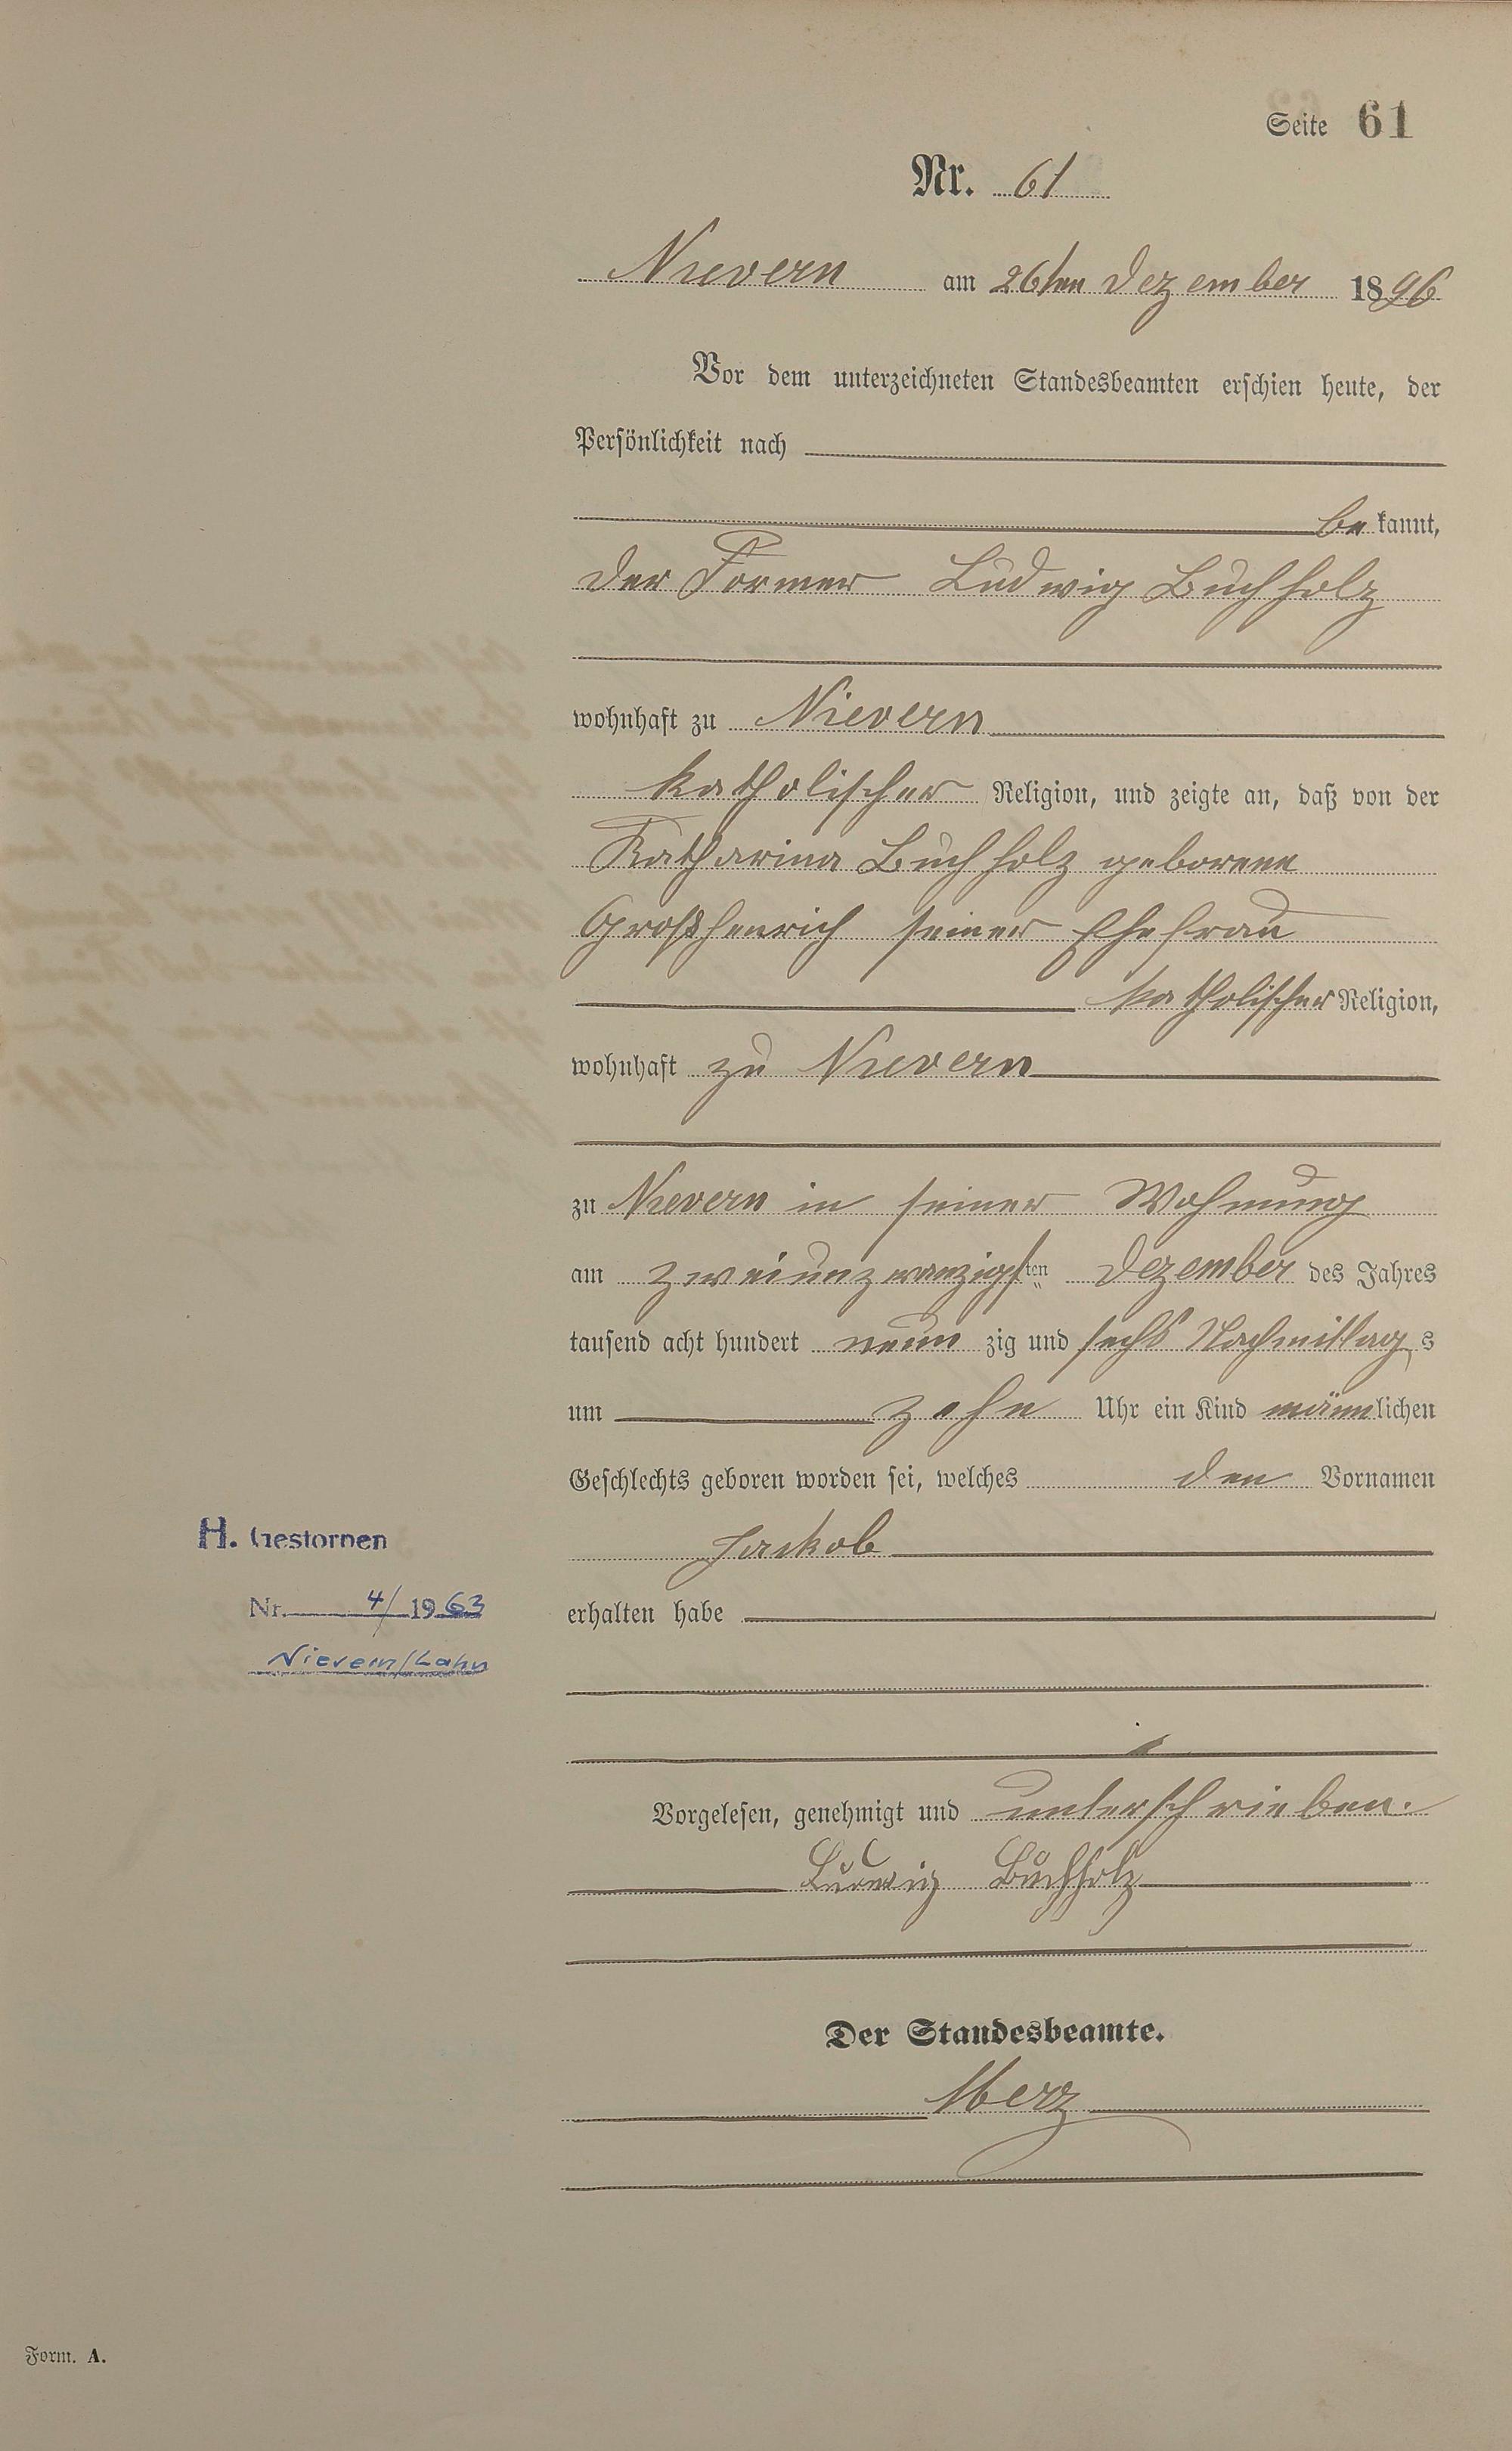 Seite 61
Nr. 61
Nievern am 26ten Dezember 1896
Vor dem unterzeichneten Standesbeamten erschien heute, der
Persönlichkeit nach
be kannt,
der Former Ludwig Buchholz
wohnhaft zu Nievern
katholischer Religion, und zeigte an, daß von der
Katharina Buchholz geborene
Großhenrich seiner Ehefrau
katholischer Religion,
wohnhaft zu Nievern
zu Nievern in seiner Wohnung
am zweiunzwanzigsten Dezember des Jahres
tausend acht hundert neun zig und sechs Nachmittag s
um zehn Uhr ein Kind männlichen
Geschlechts geboren worden sei, welches den Vornamen
H. Gestorben
Jackob
Nr. 4/1963
erhalten habe
Nievern/Lahn
Vorgelesen, genehmigt und unterschrieben.
Ludwig Buchholz
Der Standesbeamte.
Merz
Form. A.